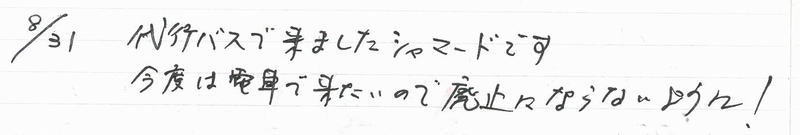 8/31 代行バスで来ましたシャマードです
今度は電車で来たいので廃止にならないように!